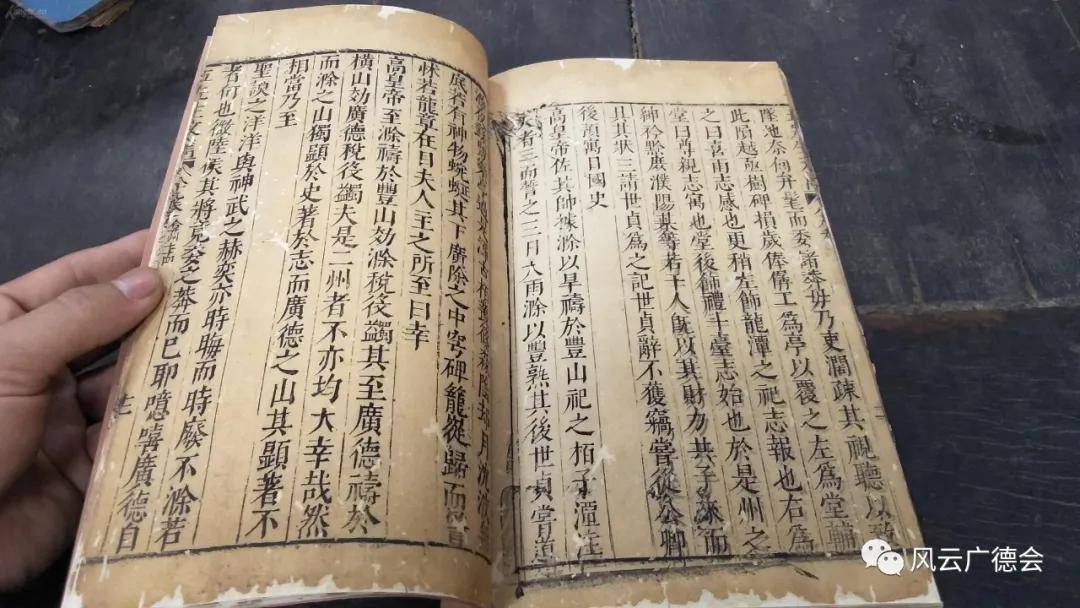 墜地奈何弁髦而委諸莽毋乃吏濶疎其視聽以致
此隕越亟樹碑損歲俸僝工爲亭以覆之左爲堂輔
之曰喜雨志感也更稍左飾龍潭之祀志報也右爲
堂曰尊親志寓也堂後飾禮斗臺志始也於是州之
紳衿黔庶濮陽某等若干人旣以其財力共子來而
具其狀三請世貞爲之記世貞辭不獲竊嘗從公卿
後頡寓目國史
高皇帝佐其帥據滁以旱禱於豐山祀之栢子潭注
矢者三而誓之三日大雨滁以豐熟其後世貞嘗道
底若有神物蜿蜒其下廣除之中穹碑巃嵸歸而
怵若龍章在日夫人主之所至曰幸
高皇帝至滁禱於豐山効滁稅役蠲其至廣德禱於
橫山効廣德稅役蠲夫是二州者不亦均大幸哉然
而滁之山獨顯於史著於志而廣德之山其顯著不
相當乃至
聖謨之洋洋與神武之赫奕亦時晦而時廢不滁若
者何也微陸侯其將竟委之莽而已耶噫嘻廣德自
风云广德会